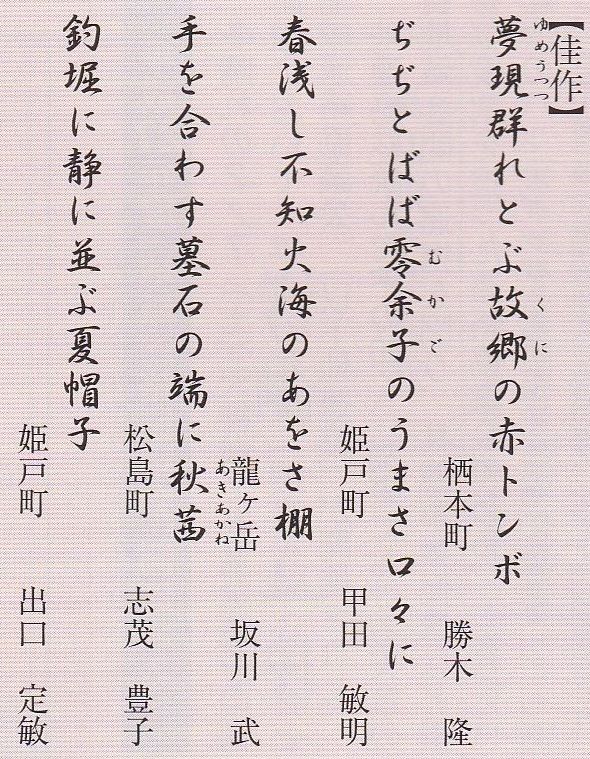 【佳作】
夢現群れとぶ故郷の赤トンボ
ゆめうつつ
くに
栖本町 勝木 隆
ぢぢとばば零余子のうまさ口々に
むかご
姫戸町 甲田 敏明
春浅し不知火海のあをさ棚
龍ヶ岳 坂川 武
手を合わす墓石の端に秋茜
あきあかね
松島町 志茂 豊子
釣堀に静に並ぶ夏帽子
姫戸町 出口 定敏